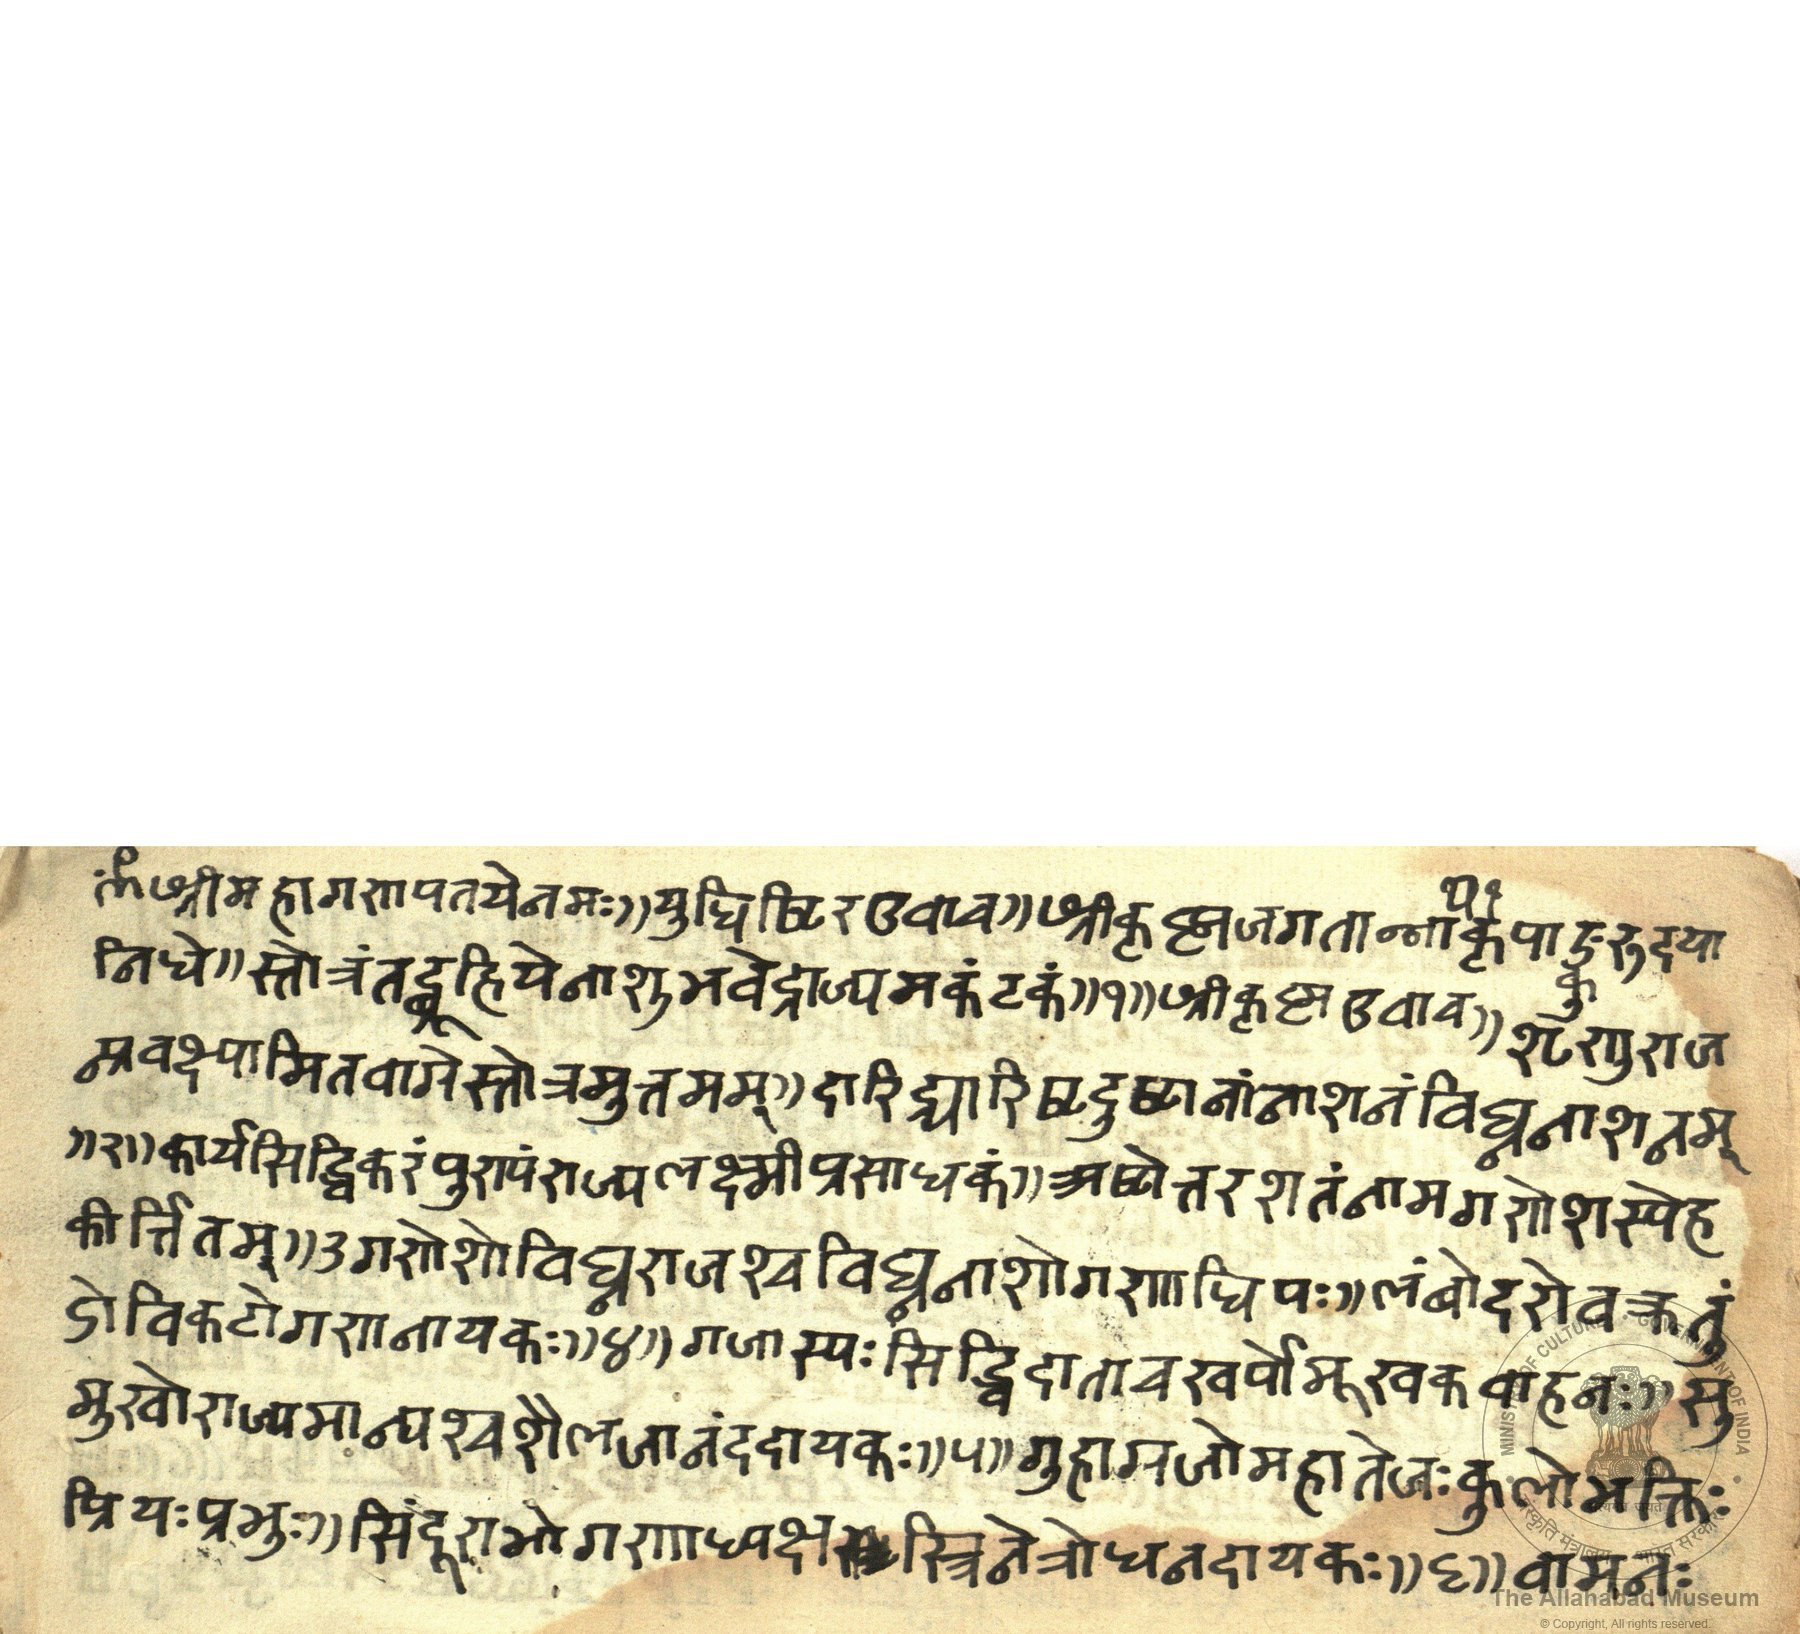 ॐ श्रीमहागणपतयेनमः॥युधिष्ठिरउवाच॥श्रीकृष्णजगतान्नाथकृपाङुरुदया
निधे॥स्तोत्रंतद्ब्रूहियेनाशुभवेद्राज्यमकंटकं॥१॥श्रीकृष्णउवाच॥शृणुराज
न्प्रवक्ष्यामितवाग्रेस्तोत्रमुत्तमम्॥दारिद्र्यारिष्टदुष्टानांनाशनंविघ्ननाशनम्
॥२॥कार्यसिद्धिकरंपुण्यंराज्यलक्ष्मीप्रसाधकं॥अष्टोत्तरशतंनामगणेशस्येह
कीर्त्तितम्॥३गणेशोविघ्नराजश्चविघ्ननाशोगणाधिपः॥लंबोदरोवक्रतुं
डोविकटोगणनायकः॥४॥गजास्यःसिद्धिदाताचखर्पोमूखकवाहनः॥सु
मुखोराज्यमान्यश्चशैलजानंददायकः॥५॥गुहाग्रजोमहातेजःकुलोभक्तिः
प्रियःप्रभुः॥सिंदूराभोगणाध्यक्षस्त्रिनेत्रोधनदायकः॥६॥वामनः
MINISTRY OF CULTURE • GOVERNMENT OF INDIA
सत्यमेव जयते
संस्कृति मंत्रालय • भारत सरकार
The Allahabad Museum
© Copyright, All rights reserved.